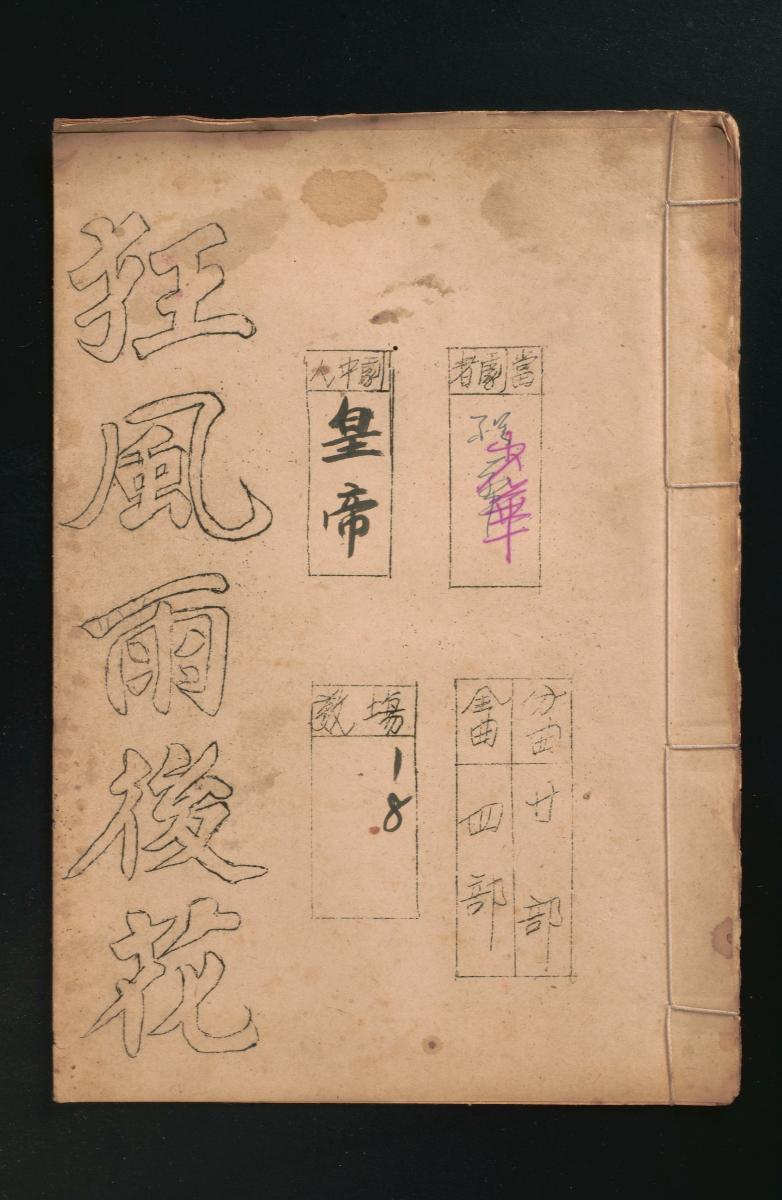 分曲廿部
全曲四部
當劇者
華
劇中人
皇帝
場數
1 8
狂風雨後花